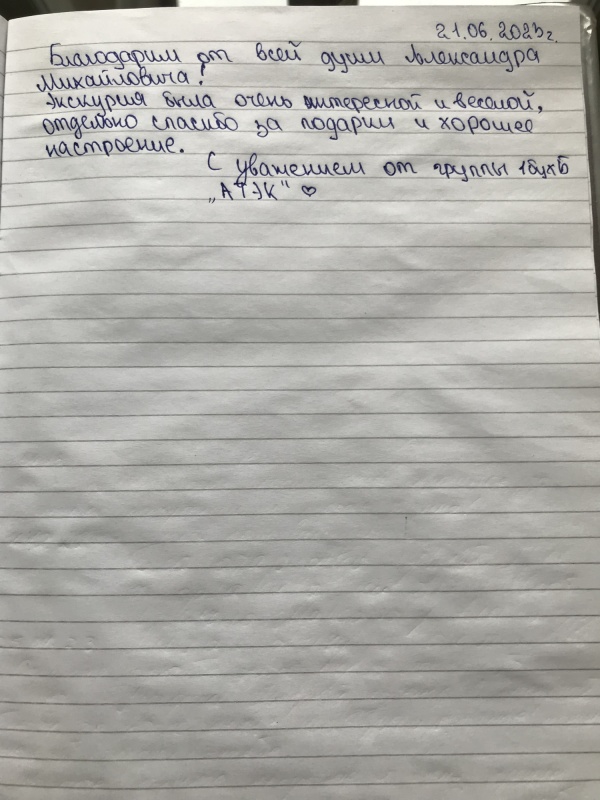 21.06.2023г.
Благодарим от всей души Александра
Михайловича!
Экскурия была очень интересной и веселой,
отдельно спасибо за подарки и хорошее
настроение.
С уважением от группы 1БухБ
„АТЭК" ♡